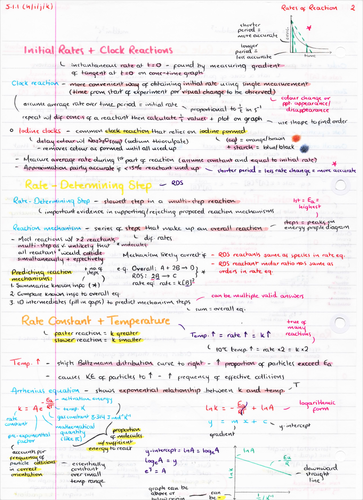 5.1.1 (h/i/j/k)
Rates of Reaction 2
shorter period = more accurate
longer period = less accurate
Initial Rates + Clock Reactions
instantaneous rate at t=0 - found by measuring gradient of tangent at t=0 on conc-time graph
Clock reaction - more convenient way of obtaining initial rate using single measurement
(time from start of experiment for visual change to be observed)
colour change or ppt. appearance/disappearance
assume average rate over time period = initial rate
proportional to 1/t in s⁻¹
repeat w/ dif. concs of a reactant then calculate 1/t values + plot on graph
use shape to find order
Iodine clocks - common clock reaction that relies on iodine formed
delay colour w/ Na₂S₂O₃(aq) (sodium thiosulfate)
(aq) = orange/brown
removes colour formed until all used up
+ starch = blue/black
Measure average rate during 1st part of reaction (assume constant and equal to initial rate)
Approximation fairly accurate if <15% reactant used up
* shorter period = less rate change = more accurate
Rate-Determining Step - RDS
Rate-Determining Step - slowest step in a multi-step reaction
important evidence in supporting/rejecting proposed reaction mechanisms
highest
Reaction mechanism - series of steps that make up an overall reaction
steps = peaks on energy profile diagram
Most reactions w/ >2 reactants multi-step as v. unlikely that all reactant would collide simultaneously + effectively
dif. rates
Mechanism likely correct if
RDS reactants same as species in rate eq.
RDS reactant molar ratio not same as orders in rate eq.
Predicting reaction mechanisms:
no. of steps
e.g. Overall: A + 2B → D
RDS: 2B → C
rate eq: rate = k[B]²
1. Summarise known info (*)
2. Compare known info to overall eq
3. ID intermediates (fill in gaps) to predict mechanism steps
sum = overall eq.
can be multiple valid answers
Rate Constant + Temperature
faster reaction = k greater
slower reaction = k smaller
Temp.↑ = rate ↑ = k↑
true of many reactions
10°C temp.↑ = rate ×2 = k×2
Temp.↑ - shifts Boltzmann distribution curve to right - ↑ proportion of particles exceed Ea
causes KE of particles to ↑ - ↑ frequency of effective collisions
Arrhenius equation - shows exponential relationship between k and temp.
rate constant
pre-exponential factor
gas constant
mathematical quantity
proportion of molecules w/ sufficient energy to react
accounts for frequency of particle collisions in correct orientation
essentially constant over small temp. range
lnk = -Ea/RT + lnA
logarithmic form
y = m x + c
gradient
y intercept
y-intercept = lnA = logₑA
logₑA = y
eʸ = A
downward straight line
graph can be above or below